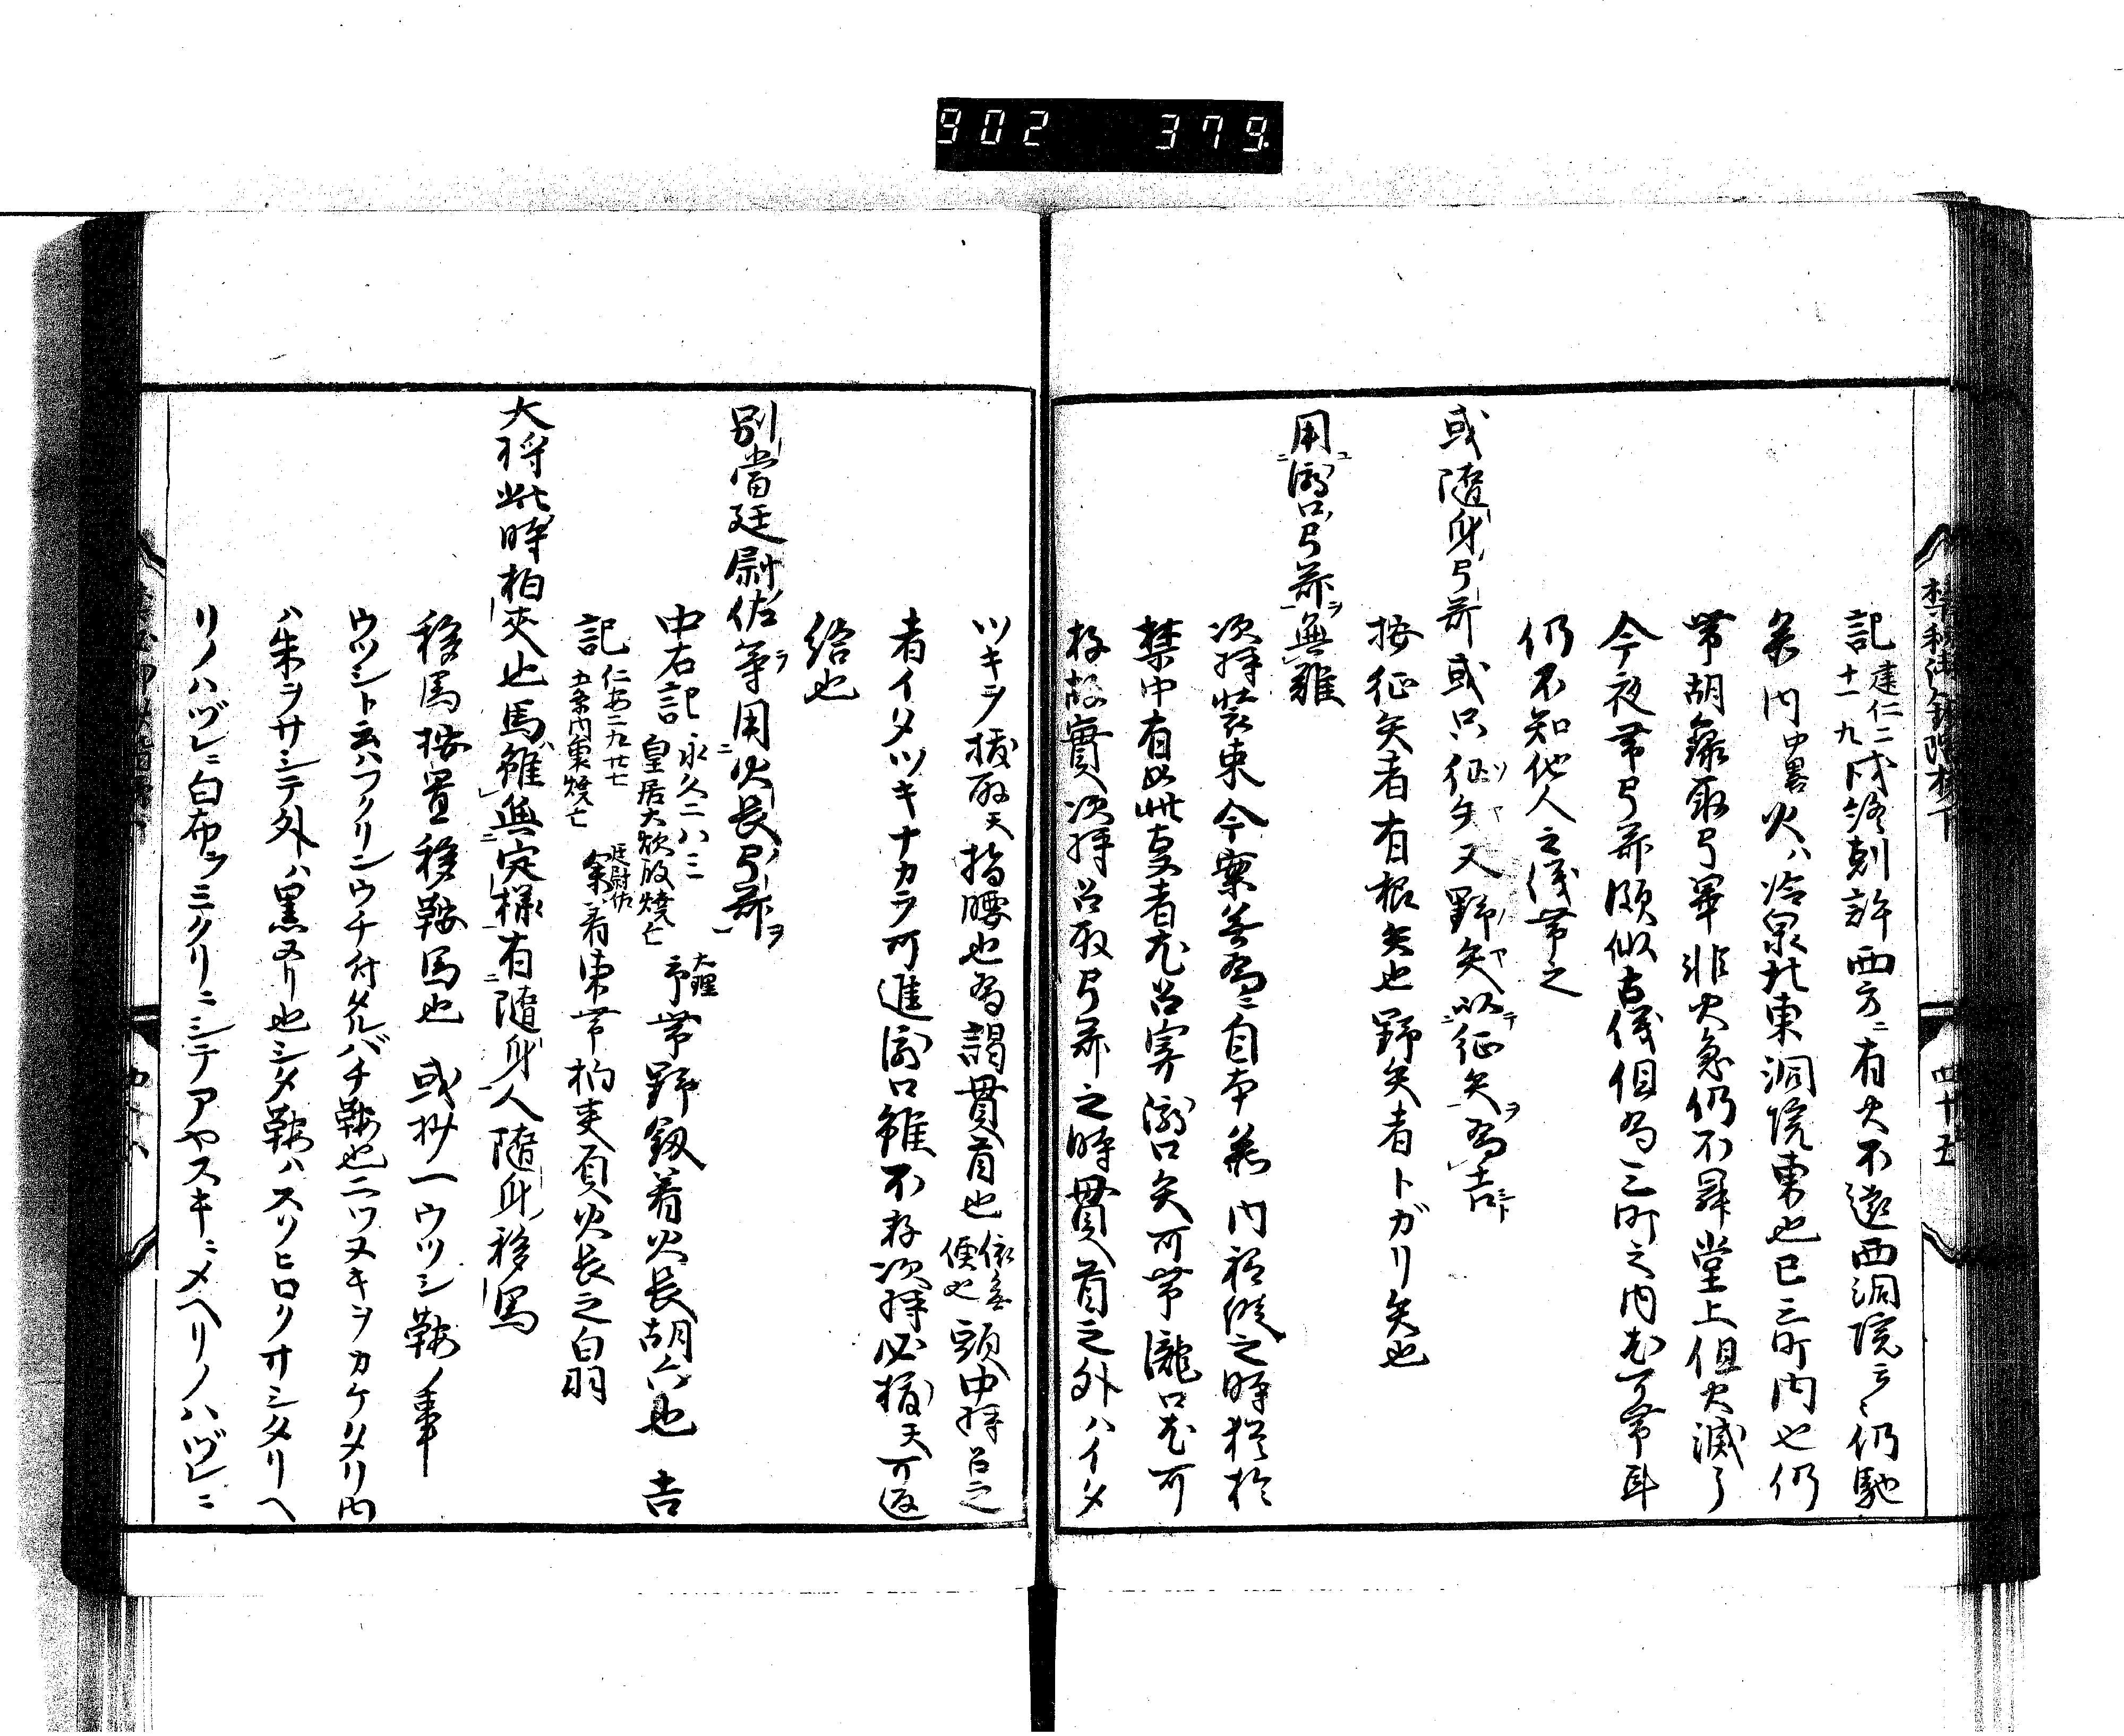 902 379.
記 建仁二 十一九 戌終剋許西方ニ有火不遠西洞院云々仍馳
参内 中畧 火ハ冷泉北東洞院東也已三町内也仍
帯胡籙取弓畢非火急仍不昇堂上但火滅了
今夜帯弓箭頗似古儀但為三町之内尤可帯耳
仍不知他人之儀帯之
或隨身弓箭或只征矢又野矢以征矢為吉
按征矢者有根矢也野矢者トガリ矢也
用瀧口弓箭無難
次将装束今案
禁中有如此事者尤召寄瀧口矢可帯瀧口尤可
存故實次将召取弓箭之時貫首之外ハイタ
ツキヲ抜取天指腰也為謁貫首也 頭中将召之
者イタツキナカラ可進瀧口雖不存次将必抜天可返
給也
別當廷尉佐等用火長弓箭
中右記 永久二八三 皇居大炊殿焼亡 大理 予帯野釼着火長胡六也 吉
記 仁安二九廿七 五条内裏焼亡 廷尉佐 余着束帯柏夾負火長之白羽
大将此時柏夾也馬雖無定様有隨身人隨身移馬
移馬按置移鞍馬也 或抄一ウツシ鞍ノ事
ウツシト云ハフクリンウチ付タルバチ鞍也二ツヌキヲカケタリ内
ハ朱ヲサシテ外ハ黒ヌリ也シタ鞍ハスリヒロクサシタリヘ
リノハヅレニ白布ヲミクリニシテアヤスキニメヘリノハヅレニ
四十五